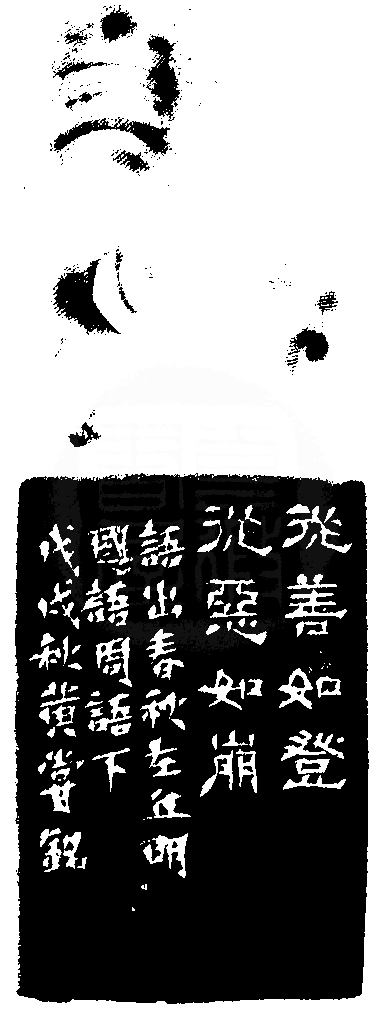 從善如登
從惡如崩
語出春秋左丘明
國語周語下
戊戌秋黄嘗銘